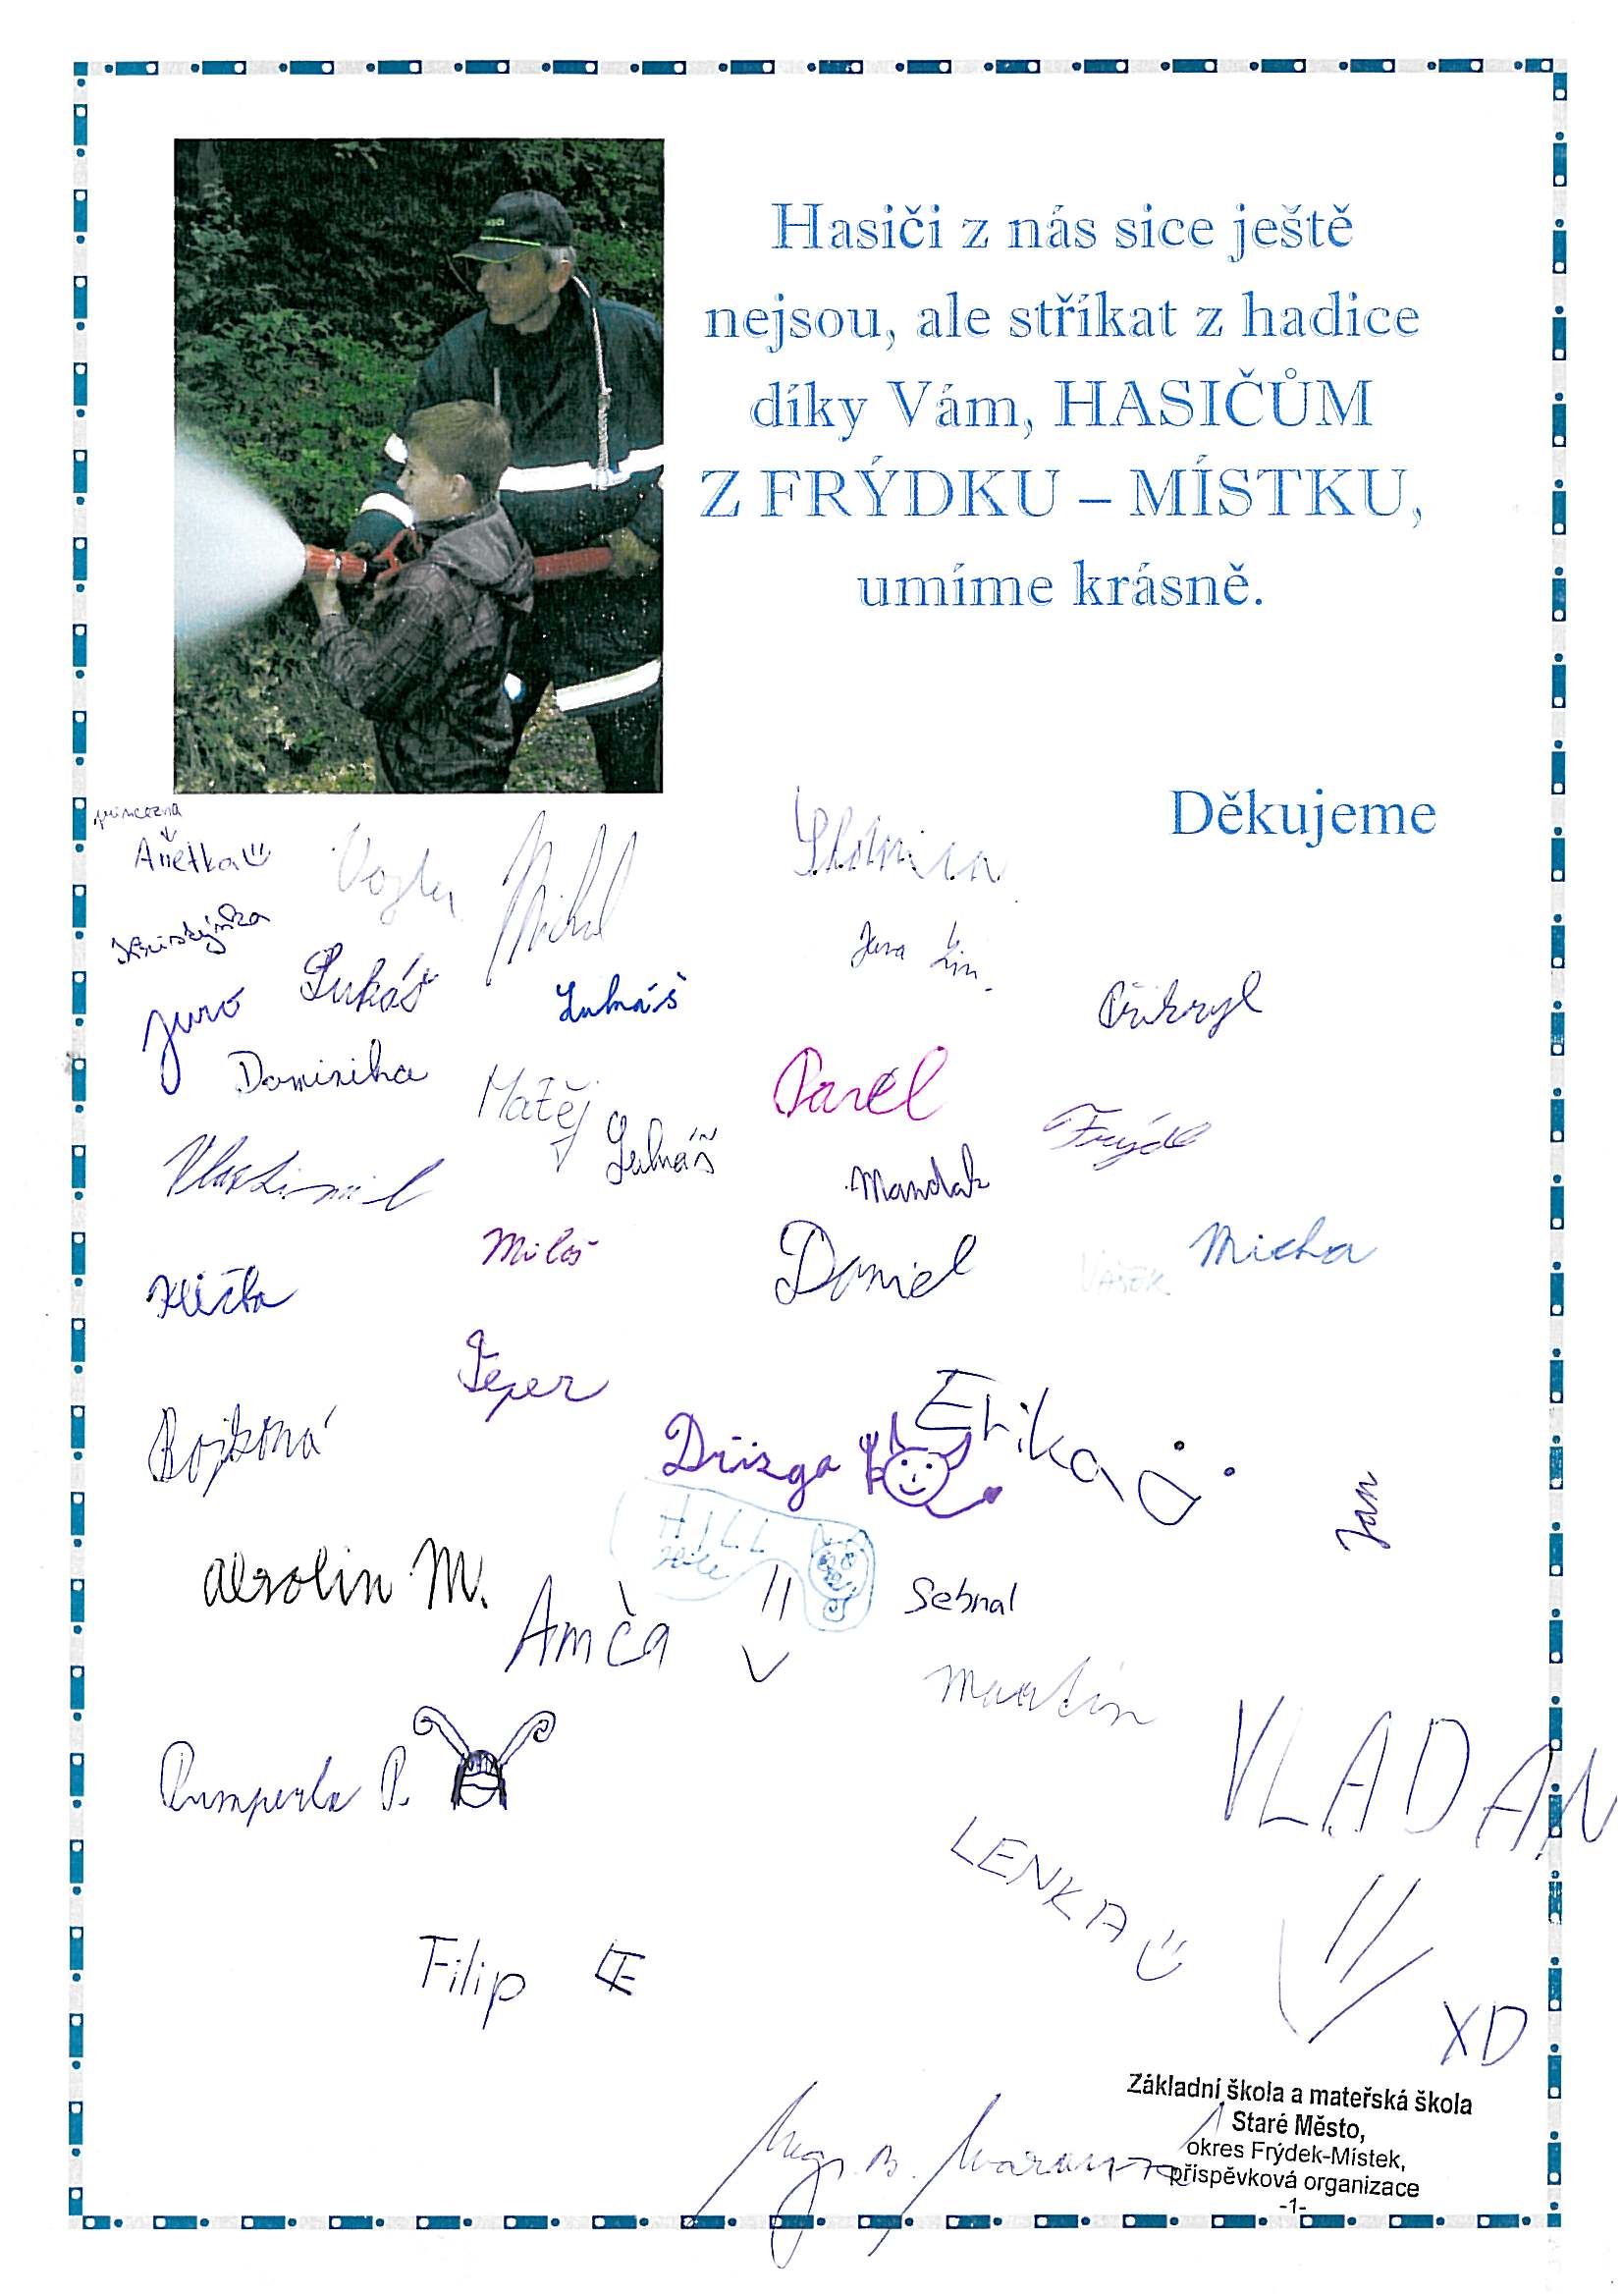 Hasiči z nás sice ještě
nejsou, ale stříkat z hadice
díky Vám, HASIČŮM
Z FRÝDKU – MÍSTKU,
umíme krásně.
Děkujeme
princezna
Anetka
Vojta
Michal
Kristýnka
Lukáš
Lukáš
Přikryl
Dominika
Matěj
Pavel
Lukáš
Frýdl
Vlastimil
Mandak
Miloš
Daniel
Vašek
Micha
Drizga
Erika
Jan
Amča
Sebnal
Martin
VLADAN
Rumperla P.
LENKA
Filip
XD
Základní škola a mateřská škola
Staré Město,
okres Frýdek-Místek,
příspěvková organizace
-1-
Mgr. B.